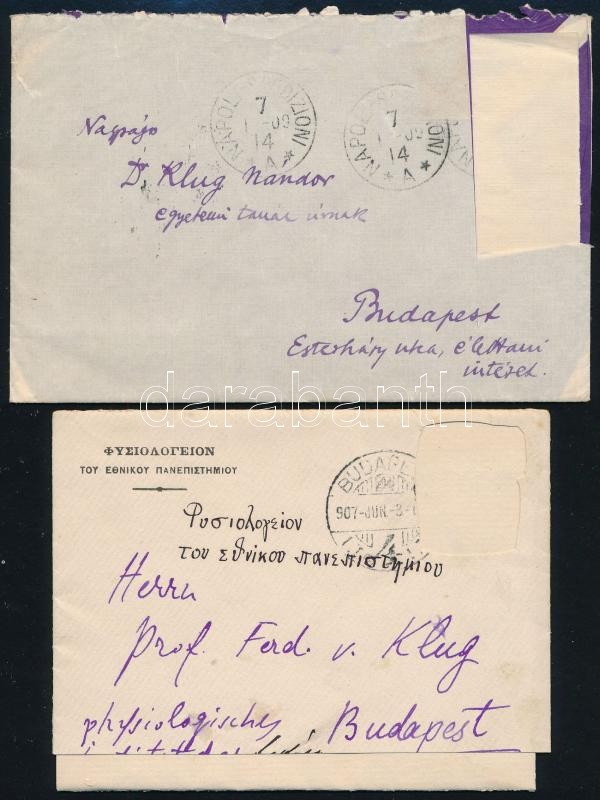 NAPOLI
7
09
14
* A *
NAPOLI
7
09
14
* A *
NA
Nagságo
Dr Klug Nándor
egyetemi tanár úrnak
Budapest
Esterházy utca, élettani
intézet.
darabanth
ΦΥΣΙΟΛΟΓΕΙΟΝ
ΤΟΥ ΕΘΝΙΚΟΥ ΠΑΝΕΠΙΣΤΗΜΙΟΥ
BUDAPE
907-JUN.-3-
Φυσιολογείον
του εθνικου πανεπιστημίου
Herrn
Prof. Ferd. v. Klug
physiologisches Budapest